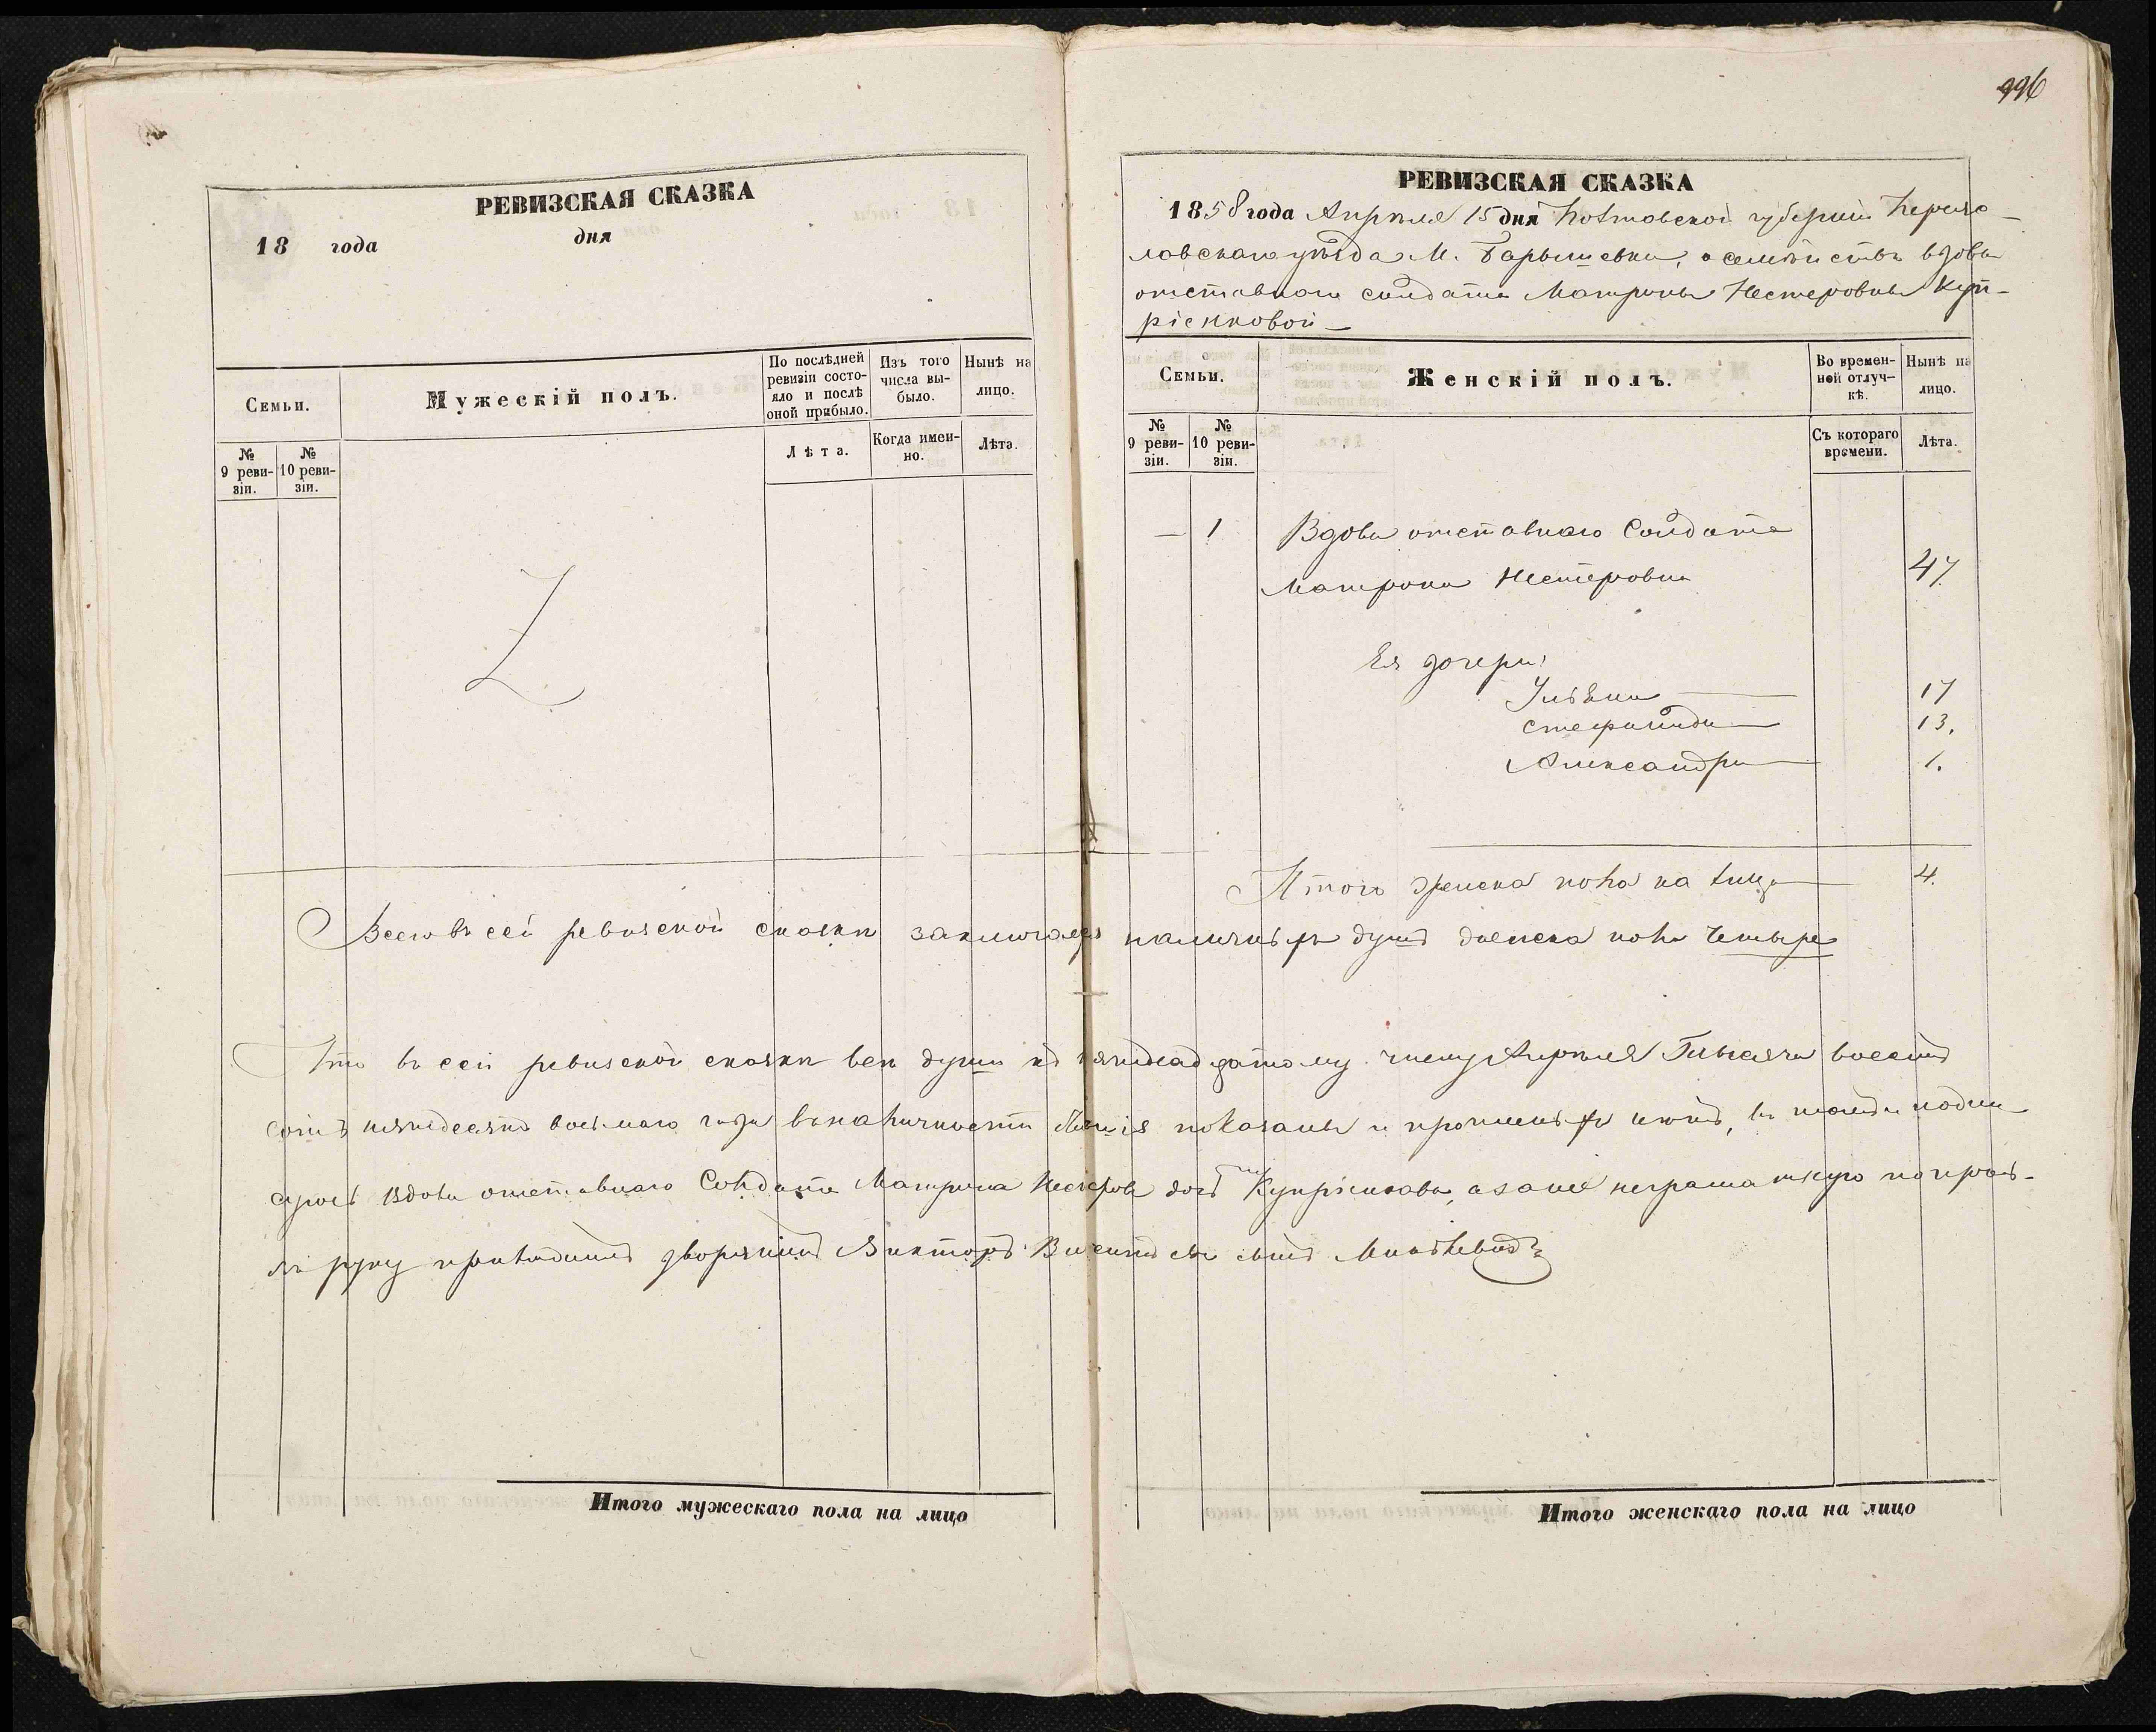 996
РЕВИЗСКАЯ СКАЗКА
18 года дня
Семьи.
Мужескій полъ.
По послѣдней ревизіи состояло и послѣ оной прибыло.
Изъ того числа выбыло.
Нынѣ на лицо.
№ 9 ревизіи.
№ 10 ревизіи.
Лѣта.
Когда именно.
Лѣта.
РЕВИЗСКАЯ СКАЗКА
1858 года Апрѣля 15 дня Полтовской губерніи Переяс-
лавскаго уѣзда М. Барышевки, о семействѣ вдовы
отставнаго солдата Матроны Нестеровны Куп-
ріенковой —
Семьи.
Женскій полъ.
Во временной отлучкѣ.
Нынѣ на лицо.
№ 9 ревизіи.
№ 10 ревизіи.
Съ котораго времени.
Лѣта.
— 1 Вдова отставнаго Солдата
Матрона Нестеровна 47.
Ея дочери:
Ульяна 17
Стефанида 13.
Александра 1.
Итого женска пола на лицо 4.
Всего въ сей ревизской сказкѣ заключается наличныхъ душъ женска пола четыре
Что въ сей ревизской сказкѣ всѣ души къ пятнадцатому числу Апрѣля Тысяча восемь
сотъ пятьдесятъ восьмаго года въ наличности показаны и прописныхъ нѣтъ, въ томъ и подпи-
суюсь Вдова отставнаго Солдата Матрона Нестерова дочь Купріенкова, а за нее неграматную по прось-
бѣ руку приложилъ дворянинъ Викторъ сынъ
Итого мужескаго пола на лицо
Итого женскаго пола на лицо